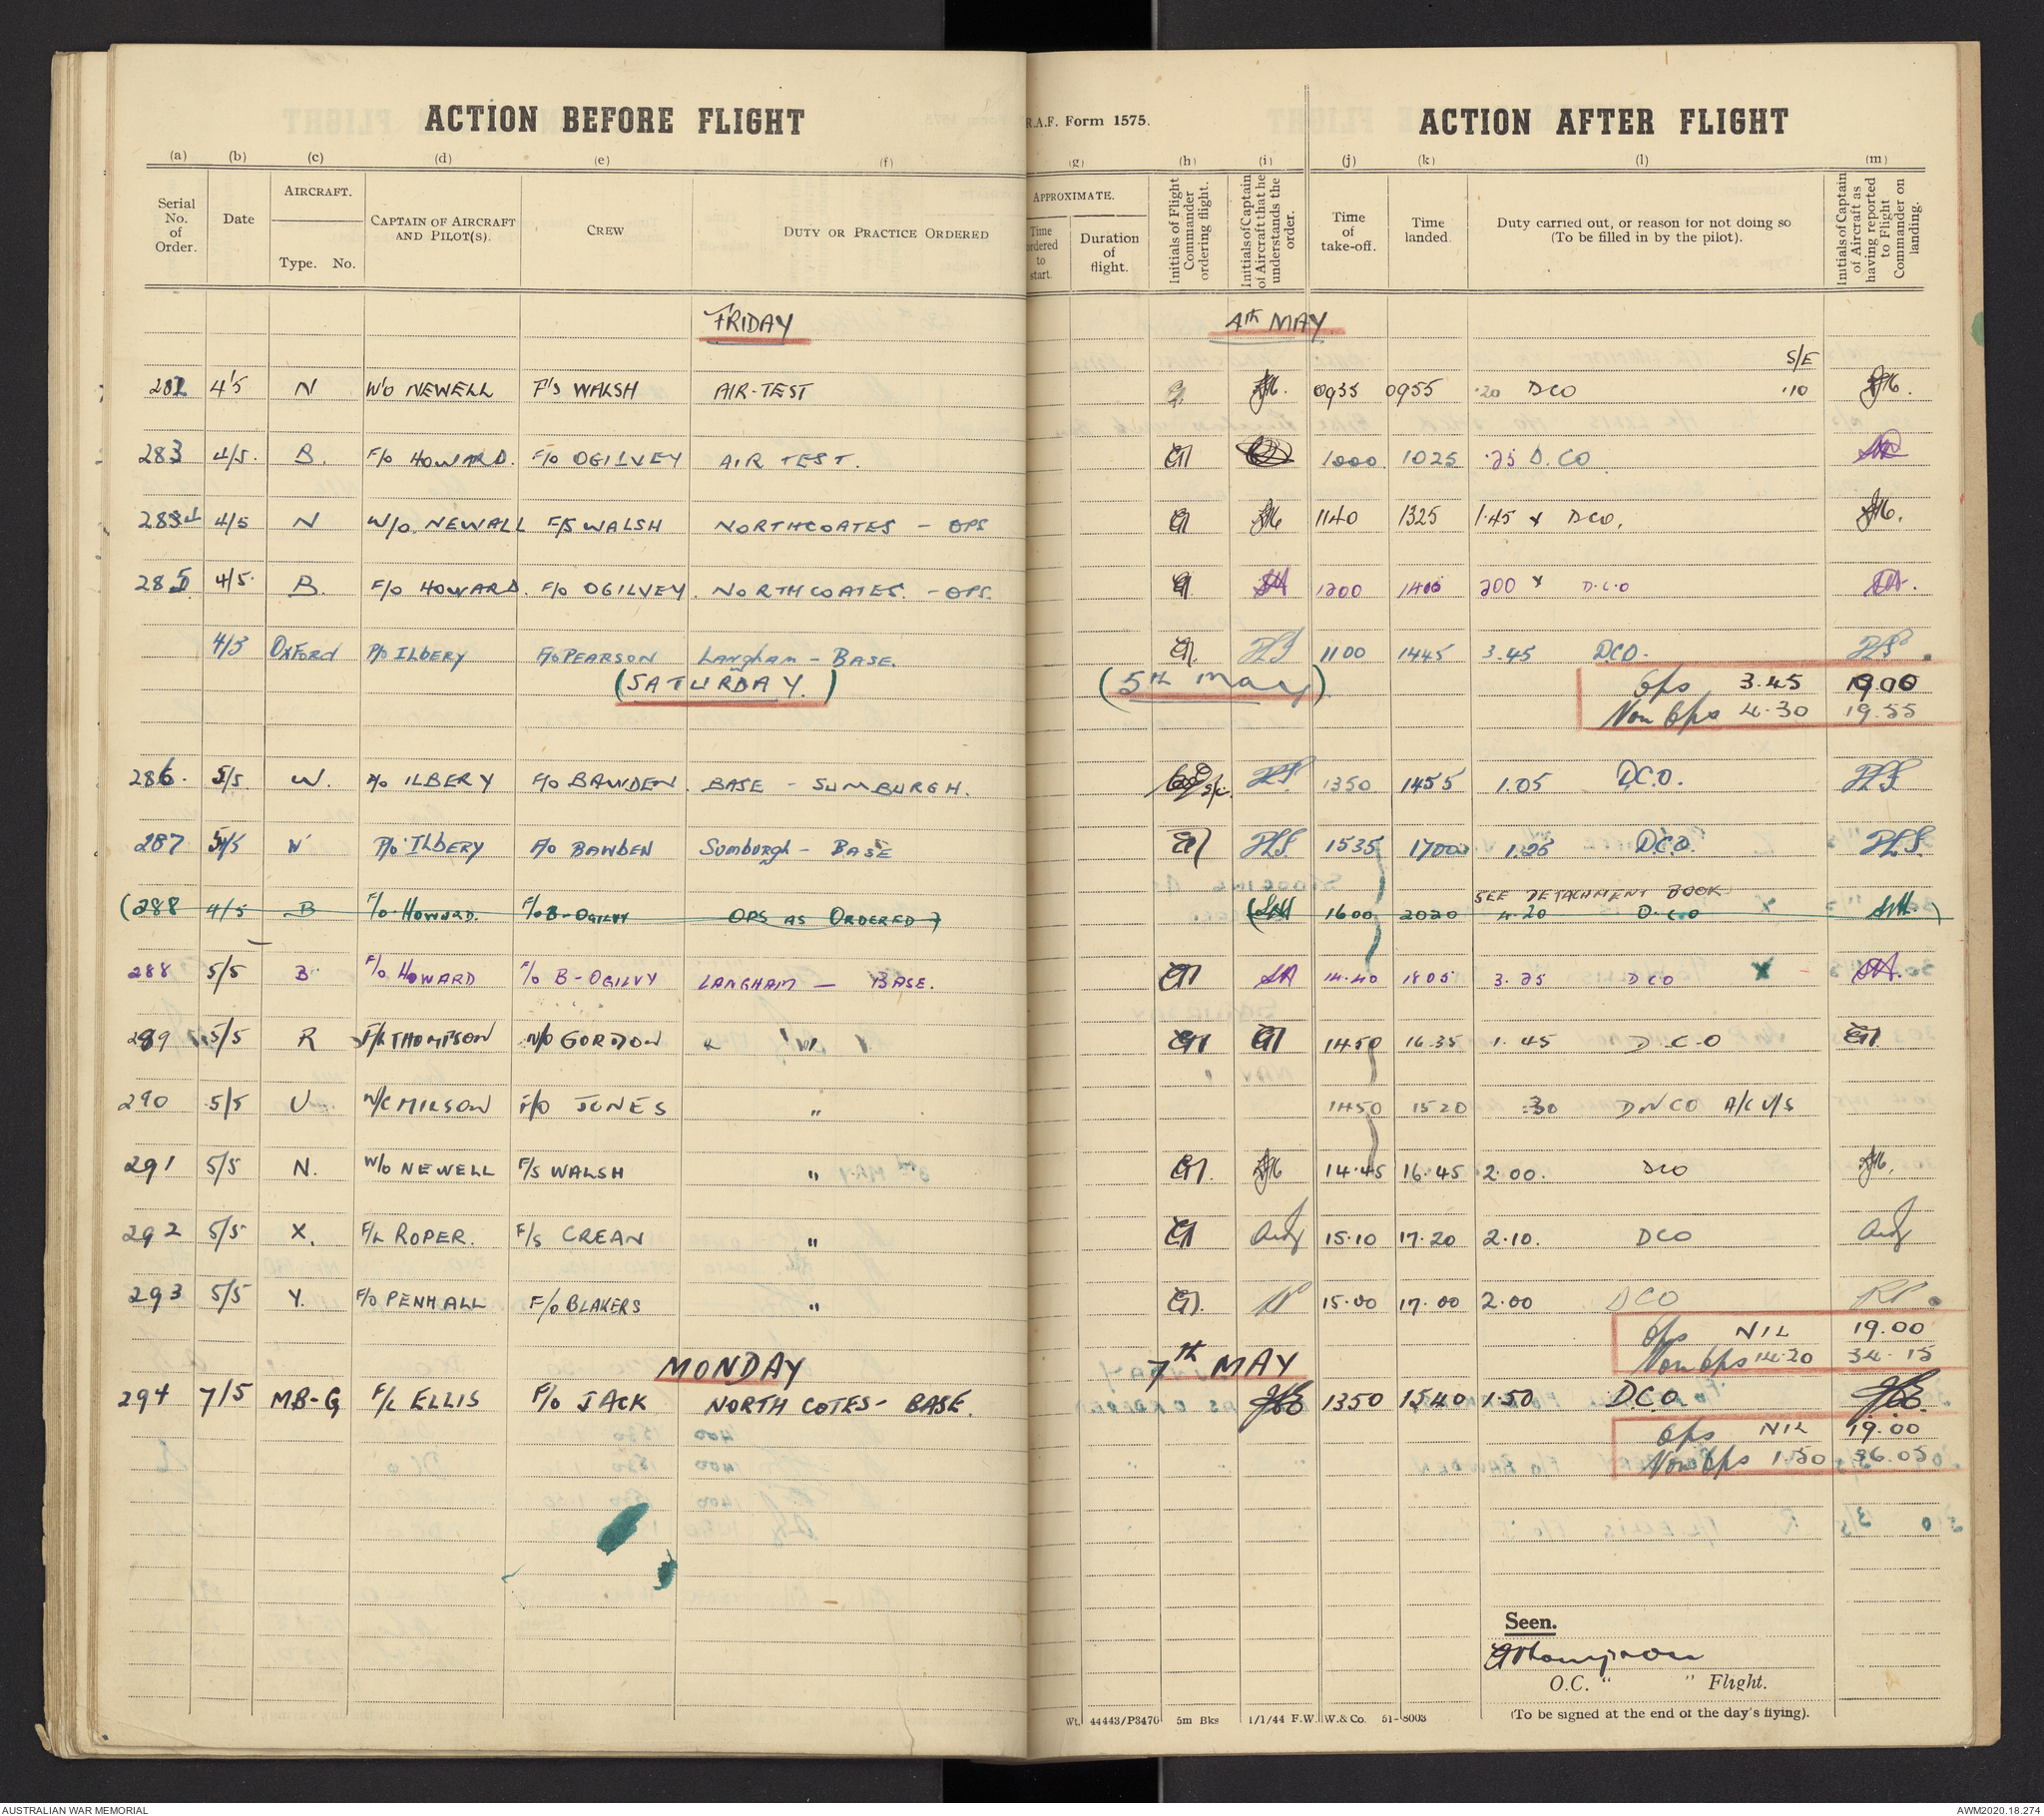 ACTION BEFORE FLIGHT
R.A.F. Form 1575.
ACTION AFTER FLIGHT
(a) (b) (c) (d) (e) (f) (g) (h) (i) (j) (k) (l) (m)
Serial No. of Order.
Date
AIRCRAFT.
Type. No.
CAPTAIN OF AIRCRAFT AND PILOT(S).
CREW
DUTY OR PRACTICE ORDERED
APPROXIMATE.
Time ordered to start.
Duration of flight.
Initials of Flight Commander ordering flight.
Initials of Captain of Aircraft that he understands the order.
Time of take-off.
Time landed.
Duty carried out, or reason for not doing so (To be filled in by the pilot).
Initials of Captain of Aircraft as having reported to Flight Commander on landing.
FRIDAY 4th MAY.
S/E
282 4/5 N W/O NEWELL F/S WALSH AIR-TEST 0935 0955 .20 DCO .10
283 4/5. B. F/O HOWARD. F/O OGILVEY AIR TEST. 1000 1025 .25 D.CO
284 4/5 N W/O NEWALL F/S WALSH NORTHCOATES - OPS 1140 1325 1.45 x DCO.
285 4/5. B. F/O HOWARD. F/O OGILVEY. NORTHCOATES. - OPS. 1200 1400 200 x D.C.O
4/5 OXFORD P/O ILBERY F/O PEARSON Langham - BASE. 1100 1445 3.45 DCO.
(SATURDAY.) (5TH May)
Ops 3.45 19.00
Non Ops 4.30 19.55
286. 5/5. W. P/O ILBERY F/O BAWDEN. BASE - SUMBURGH. 1350 1455 1.05 D.C.O.
287 5/5 W P/O ILBERY F/O BAWDEN Sumburgh - BASE 1535 1700 1.25 D.C.O.
SEE DETACHMENT BOOK
(288 4/5 B F/O HOWARD. F/O B-OGILVY OPS AS ORDERED) 1600 2020 4.20 D.C.O X
288 5/5 B F/O HOWARD F/O B-OGILVY LANGHAM — BASE. 14.40 1805 3.25 DCO X
289 5/5 R F/L THOMPSON W/O GORDON " " 1450 16.35 1.45 D.C.O
290 5/5 U W/C MILSON F/O JONES " 1450 1520 .30 DNCO A/C U/S
291 5/5 N. W/O NEWELL F/S WALSH " 14.45 16.45 2.00. DCO
292 5/5 X. F/L ROPER. F/S CREAN " 15.10 17.20 2.10. DCO
293 5/5 Y. F/O PENHALL F/O BLAKERS " 15.00 17.00 2.00 DCO
Ops NIL 19.00
Non Ops 14.20 34.15
MONDAY 7th MAY
294 7/5 MB-G F/L ELLIS F/O JACK NORTH COTES - BASE. 1350 1540 1.50 DCO
Ops NIL 19.00
Non Ops 1.50 36.05
Seen.
EThompson
O.C. " " Flight.
(To be signed at the end of the day's flying).
Wt. 44443/P3470 5m Bks 1/1/44 F.W. W.& Co. 51-8003
AUSTRALIAN WAR MEMORIAL
AWM2020.18.274